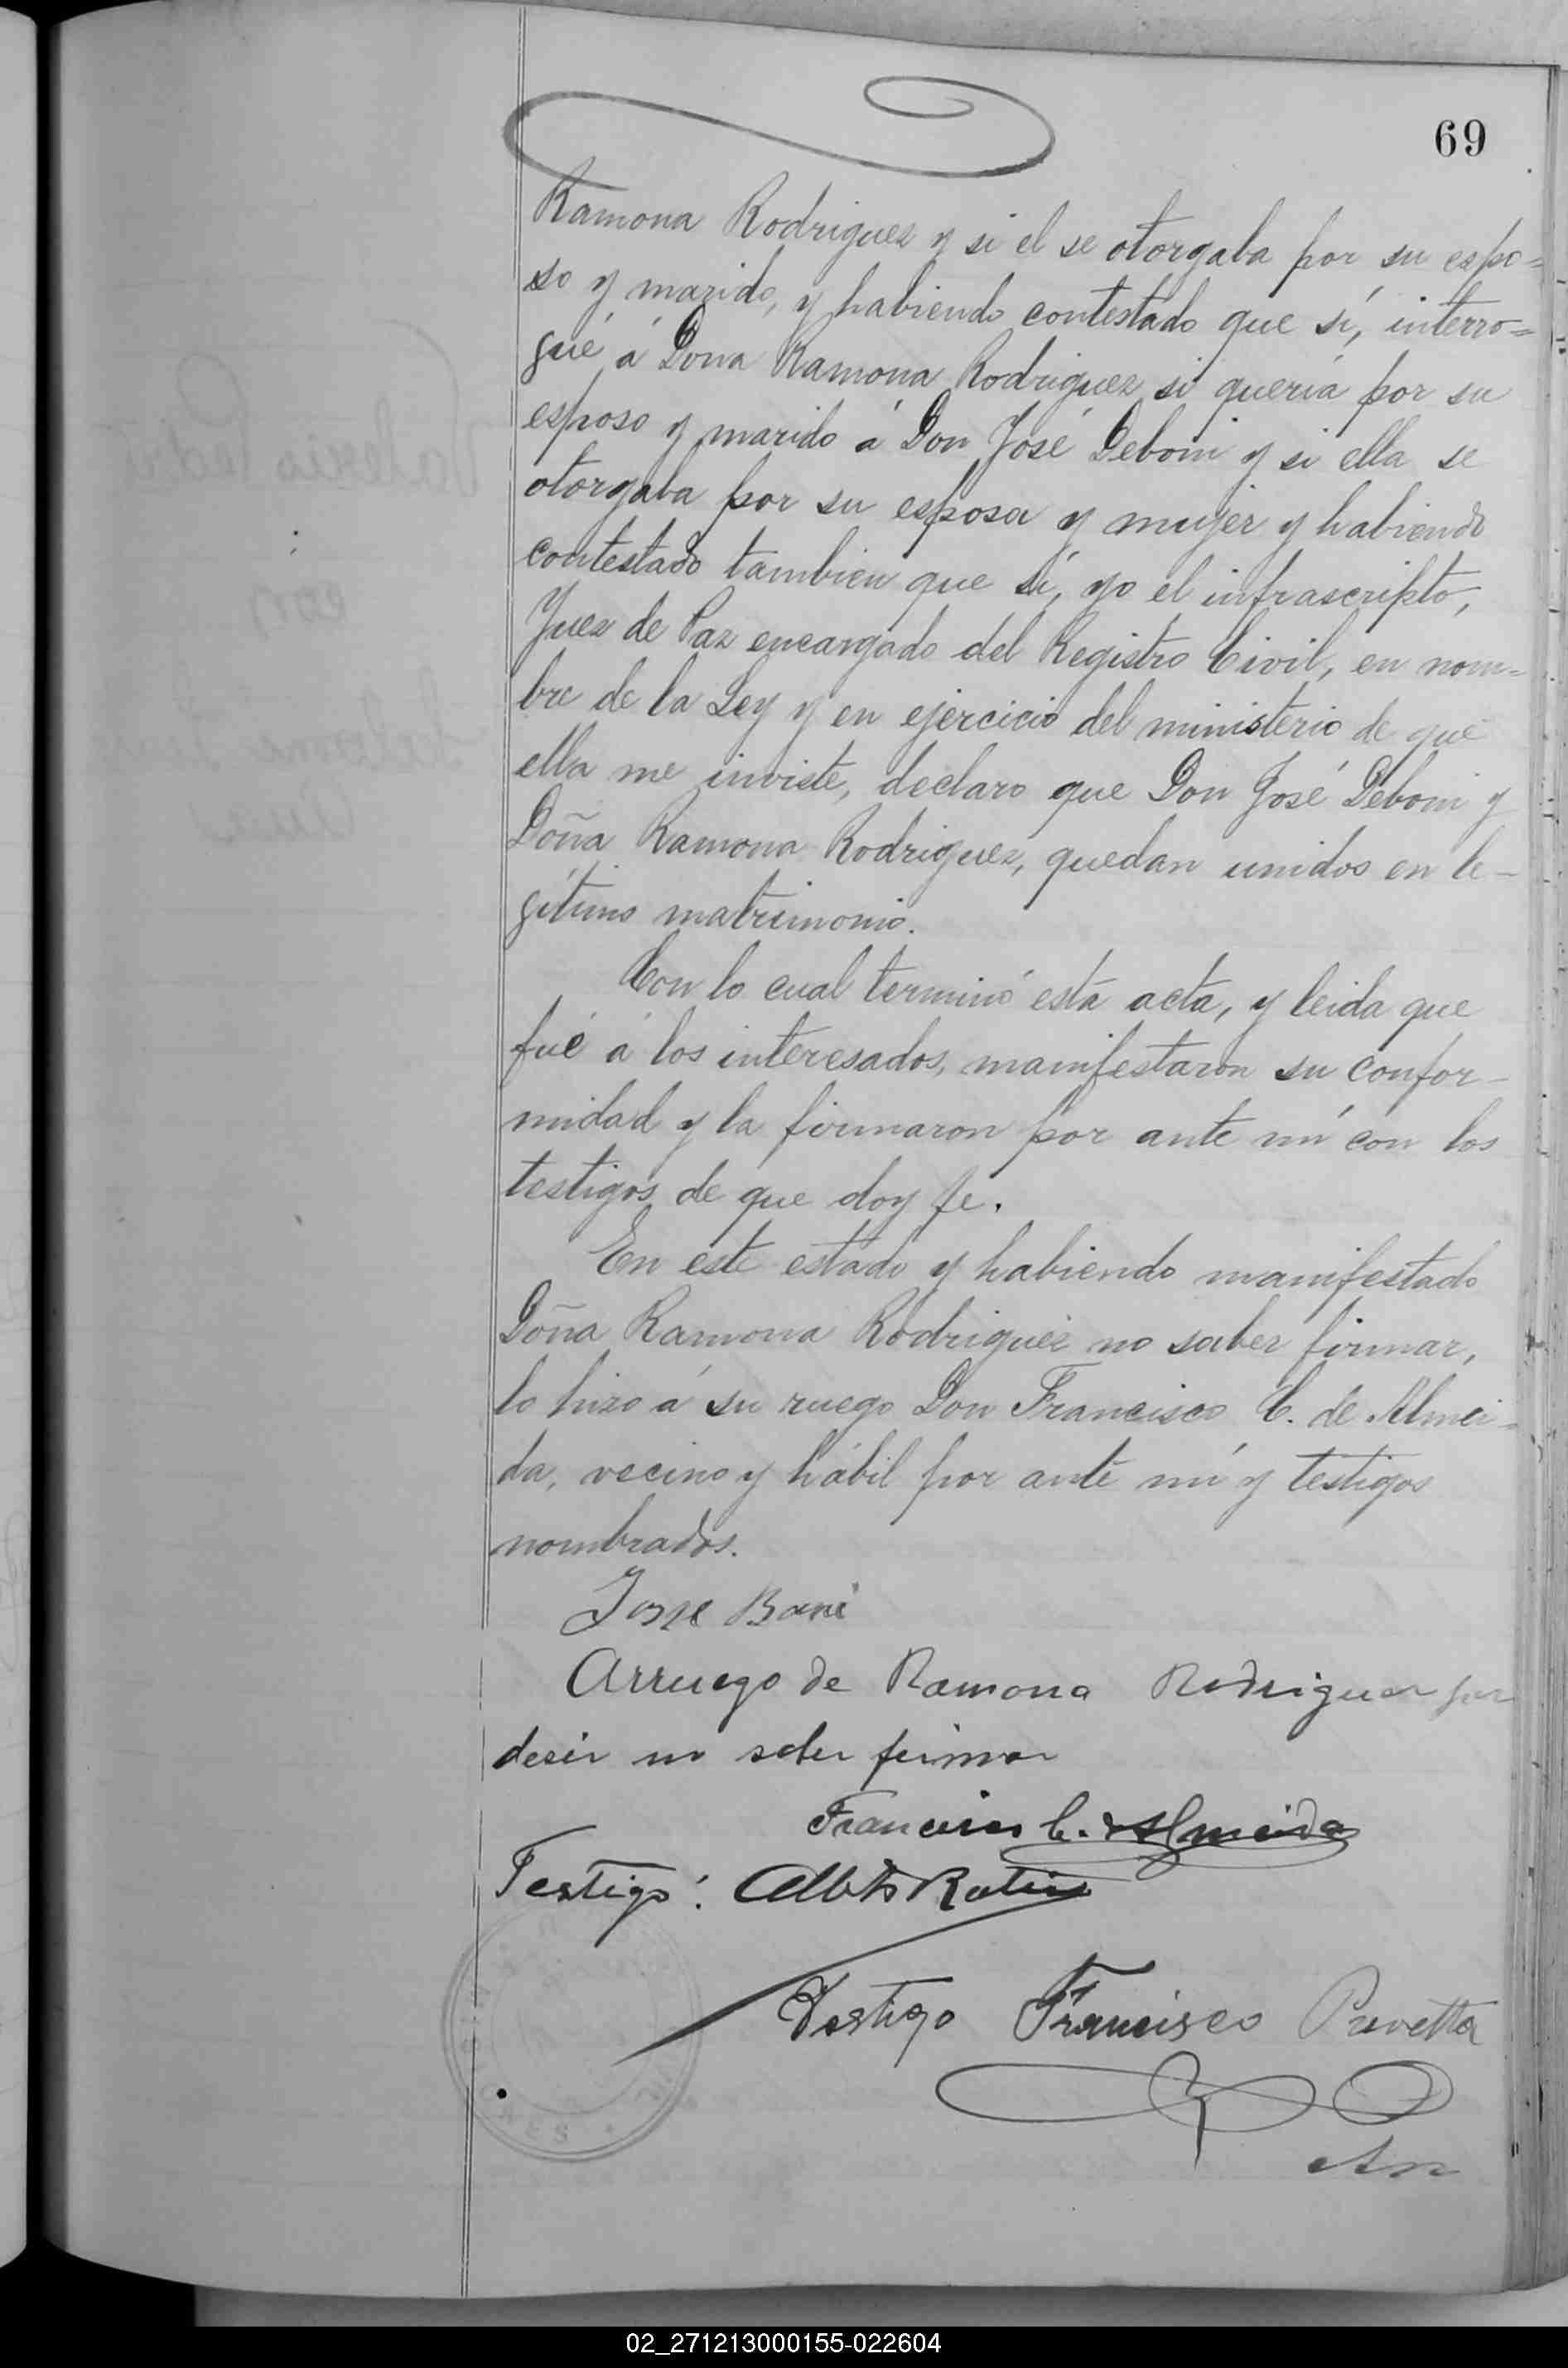 69
Ramona Rodriguez y si el se otorgaba por su espo=
so y marido, y habiendo contestado que sí, interro=
gué á Dona Ramona Rodriguez si queria por su
esposo y marido á Don José Deboni y si ella se
otorgaba por su esposa y mujer y habiendo
contestado tambien que sí, yo el infrascripto,
Juez de Paz encargado del Registro Civil, en nom=
bre de la Ley y en ejercicio del ministerio de que
ella me inviste, declaro que Don José Deboni y
Doña Ramona Rodriguez, quedan unidos en le-
gítimo matrimonio.
Con lo cual terminó esta acta, y leida que
fué á los interesados, manifestaron su confor-
midad y la firmaron por ante mí con los
testigos de que doy fe.
En este estado y habiendo manifestado
Doña Ramona Rodriguez no saber firmar,
lo hizo á su ruego Don Francisco C. de Almei=
da, vecino y hábil por ante mí y testigos
nombrados.
Arruego de Ramona Rodriguez por
desir no saber firmar
Francisco C. de Almeida
Testigo:
Testigo Francisco
02_271213000155-022604